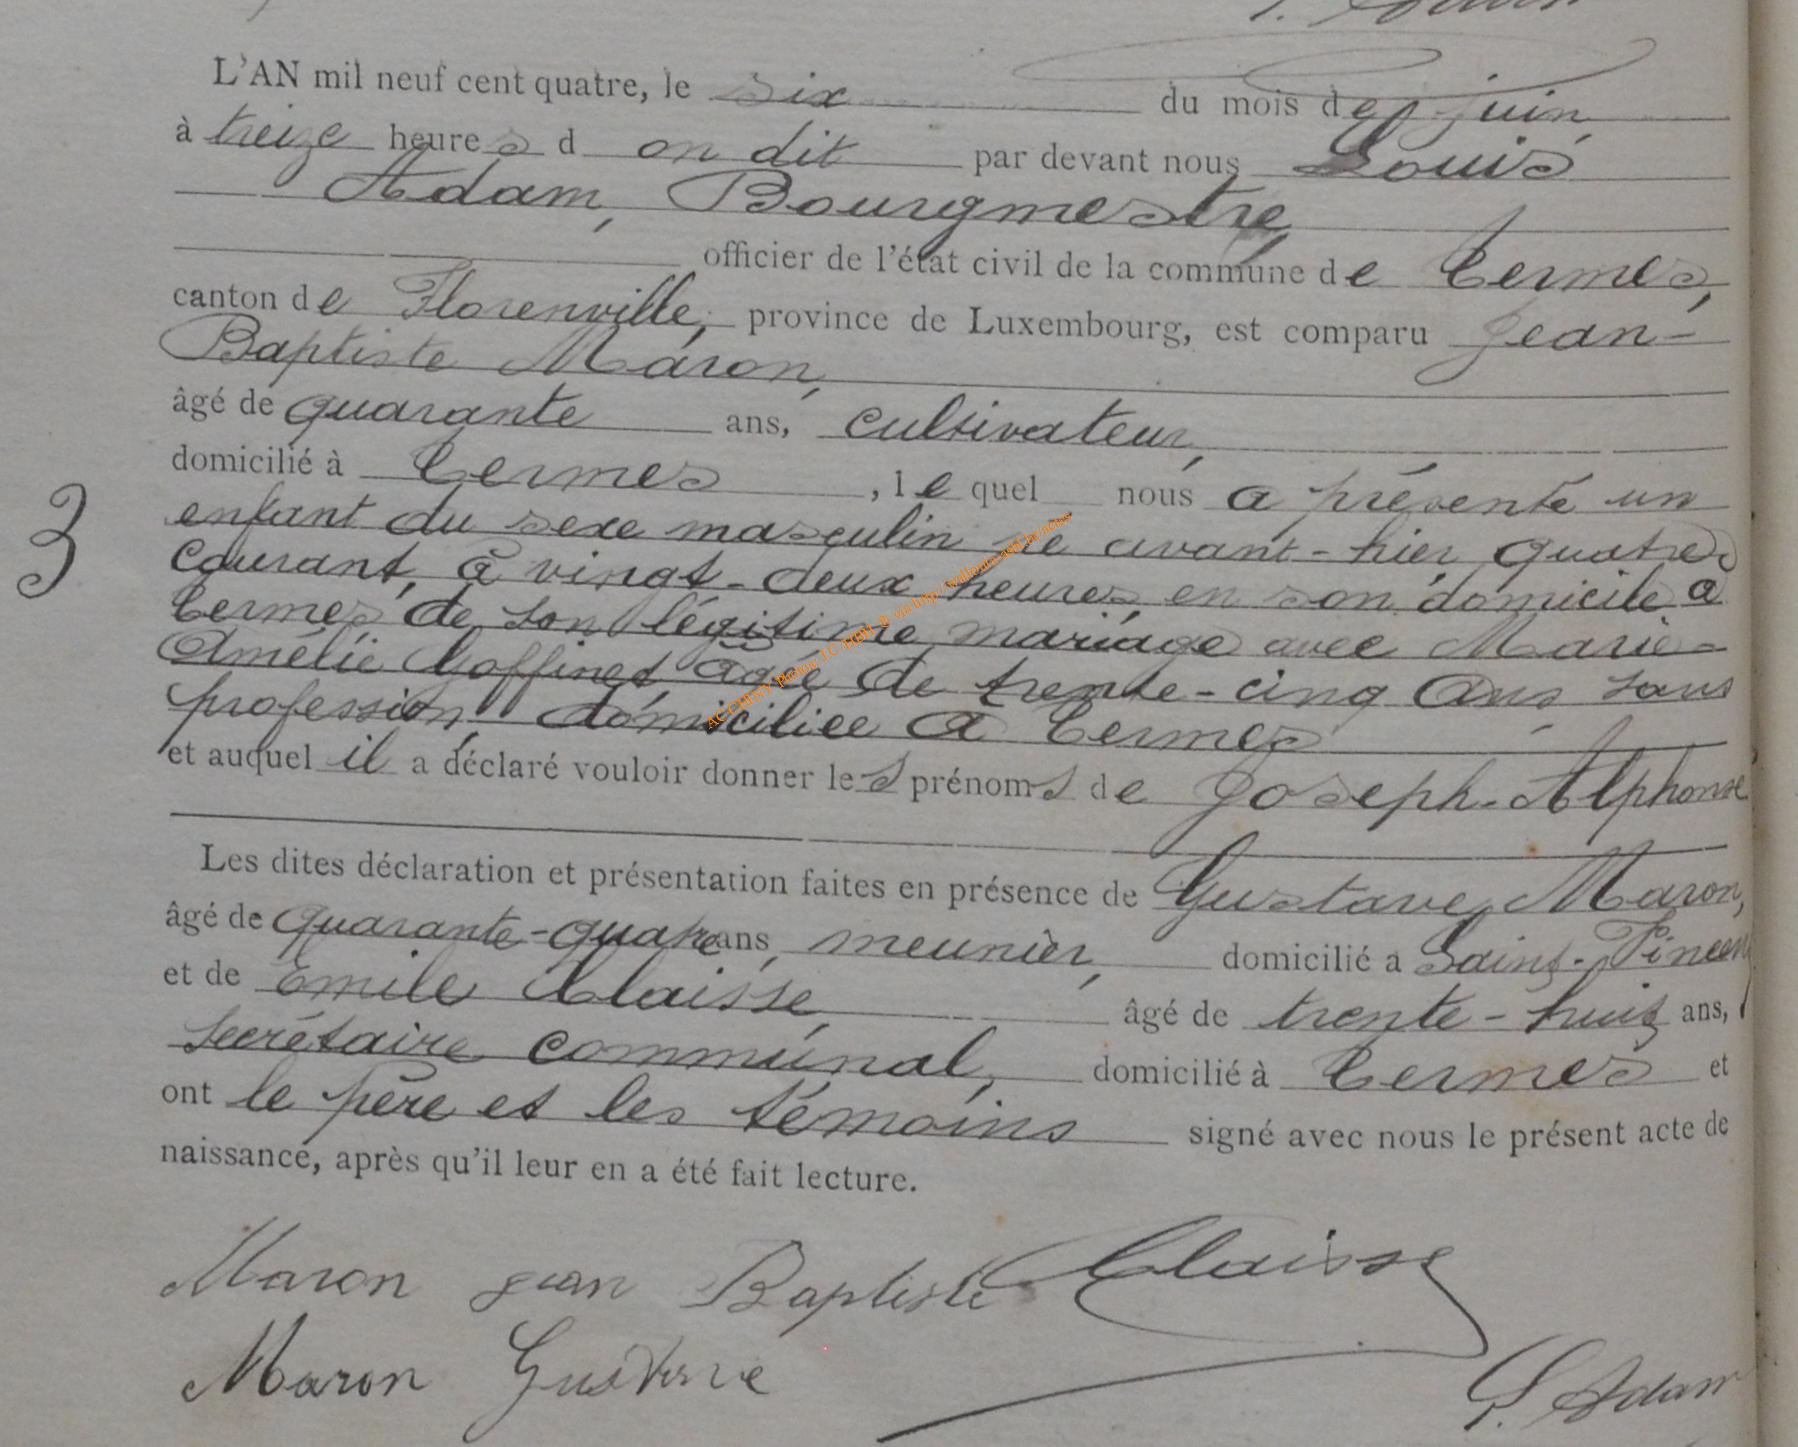 L'AN mil neuf cent quatre, le six du mois de juin,
à treize heures d on dit par devant nous Louis
Adam, Bourgmestre
officier de l'état civil de la commune de Termes,
canton de Florenville, province de Luxembourg, est comparu Jean-
Baptiste Maron,
âgé de quarante ans, cultivateur,
domicilié à Termes, lequel nous a présenté un
enfant du sexe masculin né avant-hier quatre
courant, à vingt-deux heures, en son domicile à
Termes, de son légitime mariage avec Marie-
Amélie Goffinet âgée de trente-cinq ans, sans
profession, domiciliée à Termes
et auquel il a déclaré vouloir donner les prénoms de Joseph-Alphonse
3
Les dites déclaration et présentation faites en présence de Gustave Maron,
âgé de quarante-quatre ans, meunier, domicilié a Saint-Vincent,
et de Emile Claisse, âgé de trente-huit ans,
secrétaire communal, domicilié à Termes et
ont le père et les témoins signé avec nous le présent acte de
naissance, après qu'il leur en a été fait lecture.
Maron jean Baptiste Claisse
Maron Gustave
L. Adam